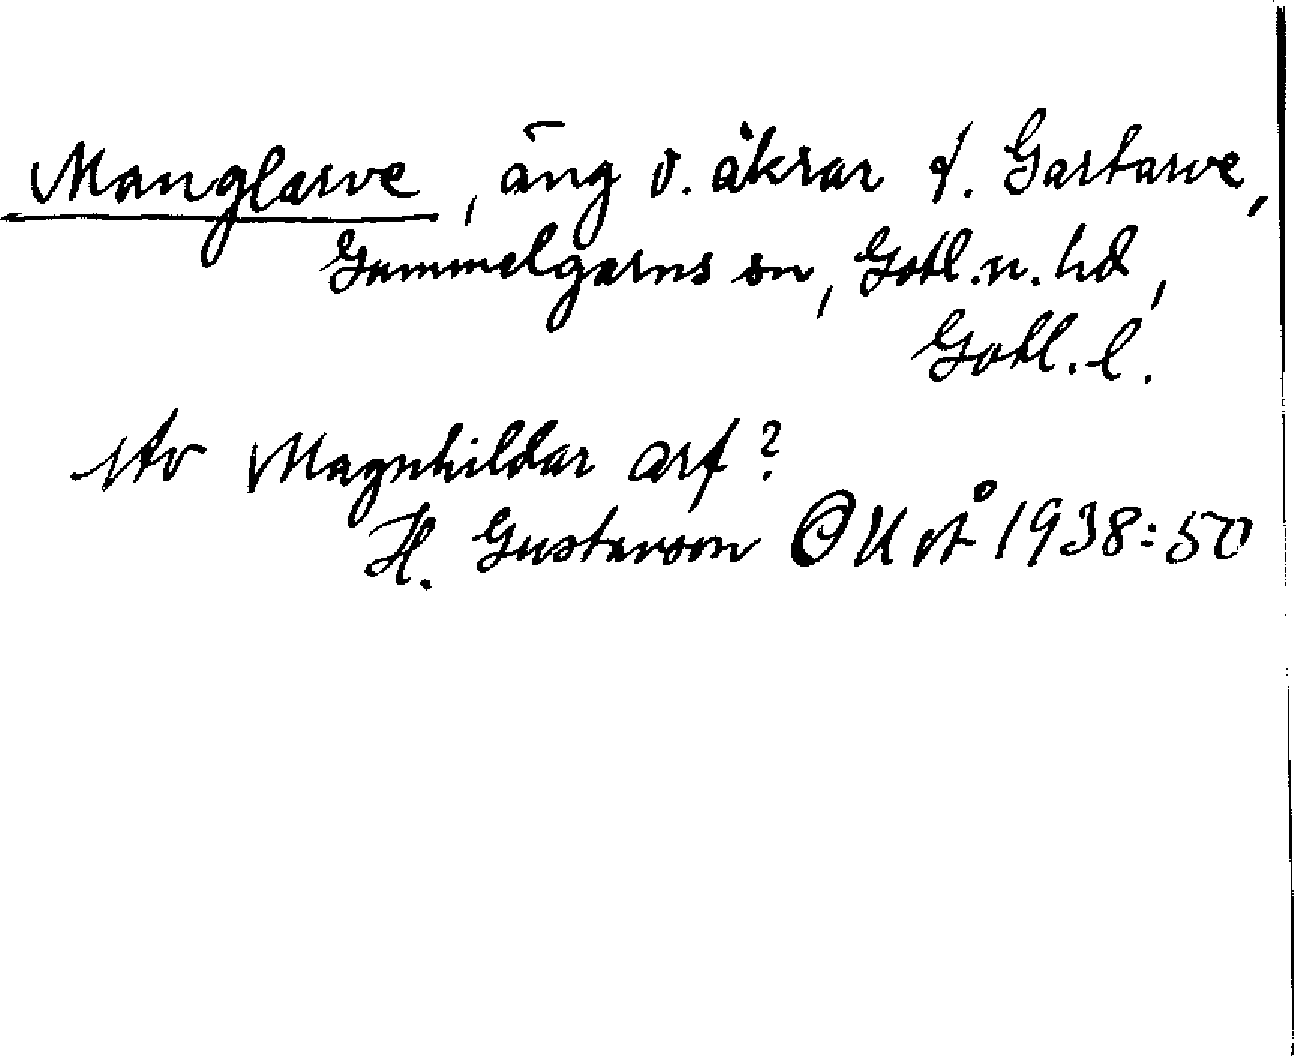 Manglarve, äng o. åkrar t. Gartarve,
Gammelgarns sn, Gotl. n. hd,
Gotl. l.
Av Magnhildar arf?
H. Gustavson OUÅ 1938:50